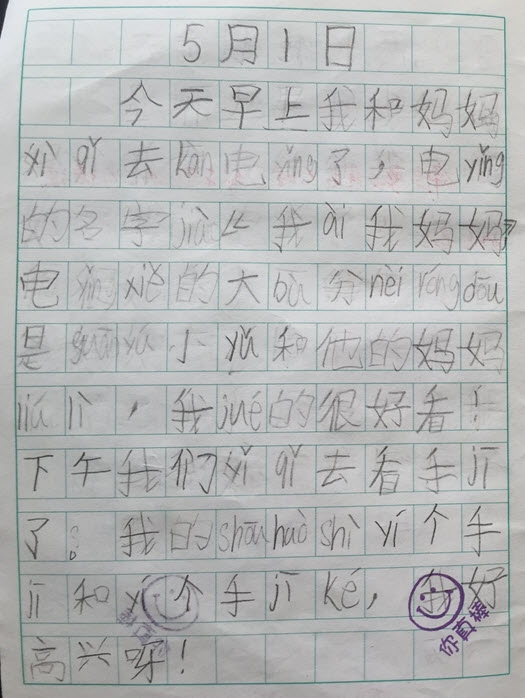 5月1日
今天早上我和妈妈
yì qǐ去kàn电yǐng了，电yǐng
的名字jiào《我ài我妈妈》
电yǐngxiě的大bù分nèi róng dōu
是guān yú小yú和他的妈妈
，我jué的很好看！
下午我们yì qǐ去看手jī
了。我的shōu hào shì yí个手
jī和yí个手jī ké，我好
高兴呀！
你真棒